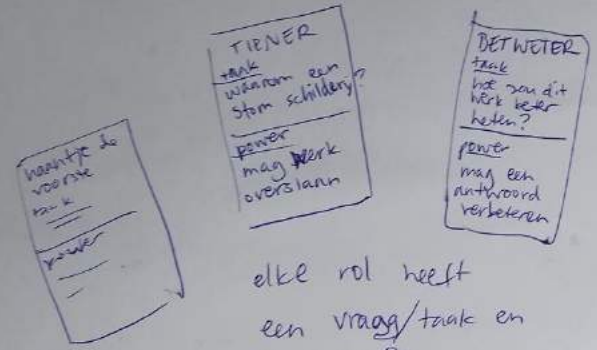 haantje de
voorste
taak
power
TIENER
taak
waarom een
stom schilderij?
power
mag werk
overslaan
BETWETER
taak
hoe zou dit
werk beter
heten?
power
mag een
antwoord
verbeteren
elke rol heeft
een vraag/taak en